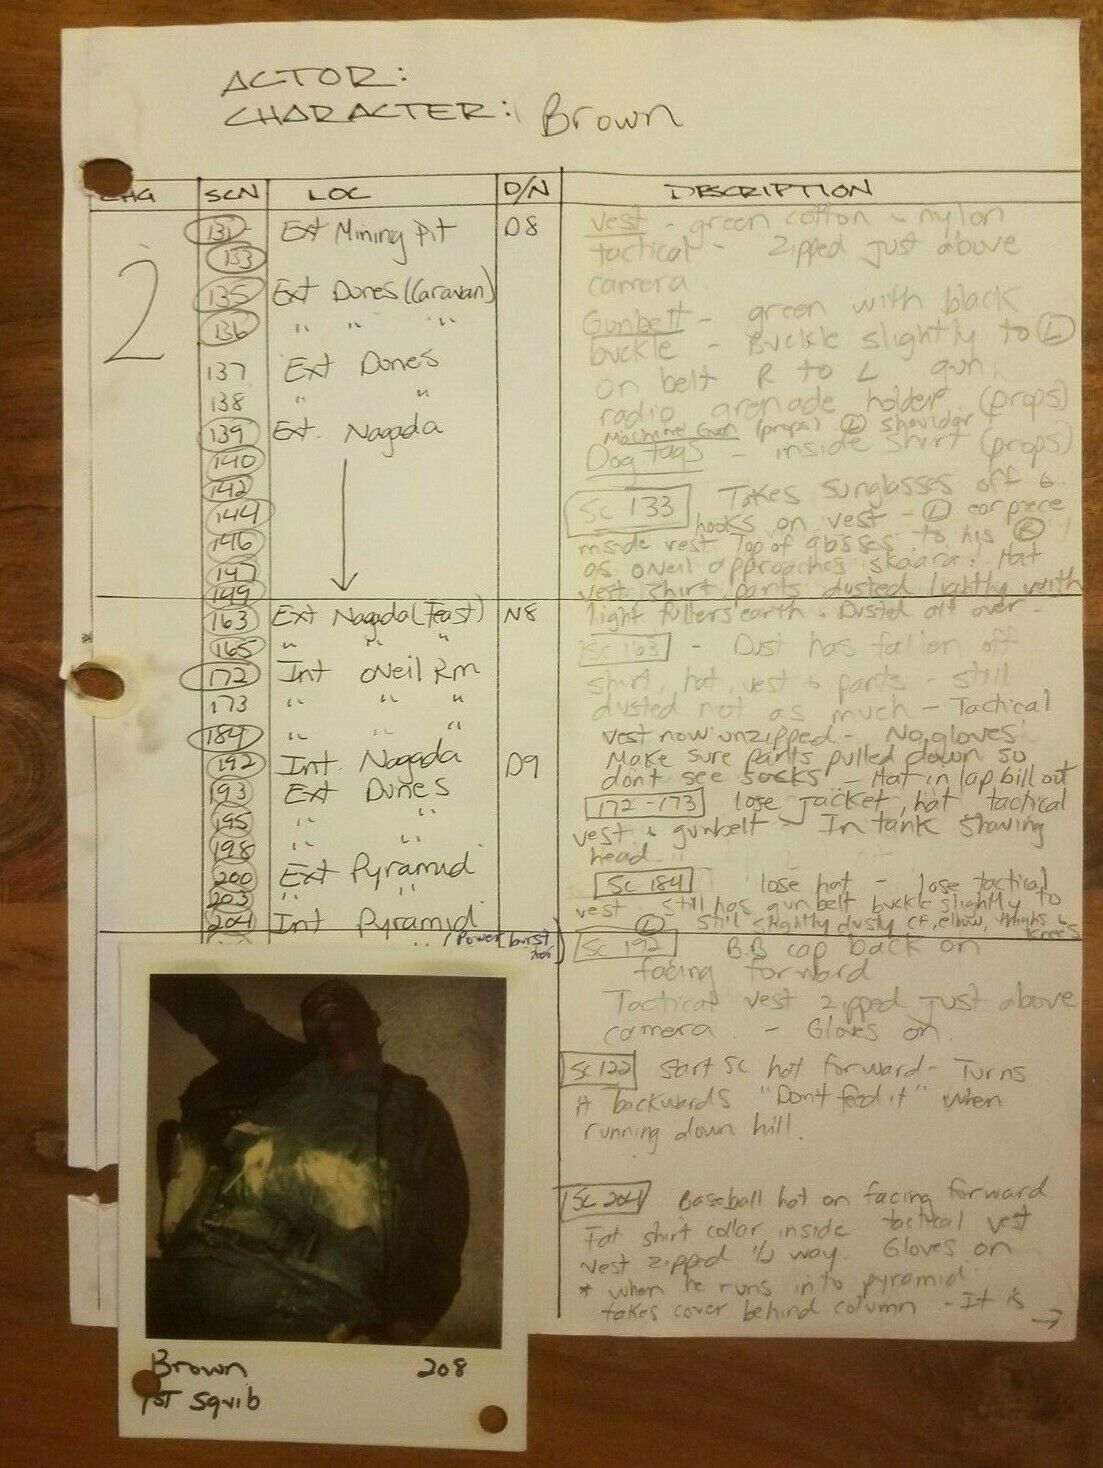 ACTOR:
CHARACTER: Brown
CHG SCN LOC D/N DESCRIPTION
2
131 Ext Mining Pit D8
133
135 Ext Dunes (Caravan)
136 " " "
137 Ext Dunes
138 " "
139 Ext. Nagada
140
142
144
146
147
149
163 Ext Nagada (Feast) N8
165 " " "
172 Int ONeil Rm
173 " " "
184 " " "
192 Int. Nagada D9
193 Ext Dunes
195 " "
198 " "
200 Ext Pyramid
203 " "
204 Int Pyramid
" (Power burst
vest - green cotton & nylon
tactical - zipped just above
camera
Gunbelt - green with black
buckle - Buckle slightly to L
on belt R to L gun,
radio grenade holder (props)
Machine Gun (props) L shoulder
Dog tags - inside shirt (props)
Sc 133 Takes sunglasses off &
hooks on vest - L earpiece
inside vest. Top of glasses to his R
as ONeil approaches skaara. Hat
vest shirt, pants dusted lightly with
light fullers earth. Dusted all over -
Sc 163 - Dust has fallen off
shirt, hat, vest & pants - still
dusted not as much - Tactical
vest now unzipped - No gloves
Make sure pants pulled down so
don't see socks - Hat in lap bill out
172-173 lose jacket, hat tactical
vest & gunbelt - In tank shaving
head
Sc 184 lose hat - lose tactical
vest still has gunbelt buckle slightly to
L still slightly dusty elbow, thighs & knees
Sc 192 B.B cap back on
facing forward
Tactical vest zipped just above
camera - Gloves on
Sc 122 Start Sc hat forward - Turns
it backwards "Don't feed it" when
running down hill.
Sc 204 Baseball hat on facing forward
Fat shirt collar inside tactical vest
Vest zipped ½ way. Gloves on
* when he runs into pyramid
takes cover behind column - It is
→
Brown 208
1ST Squib